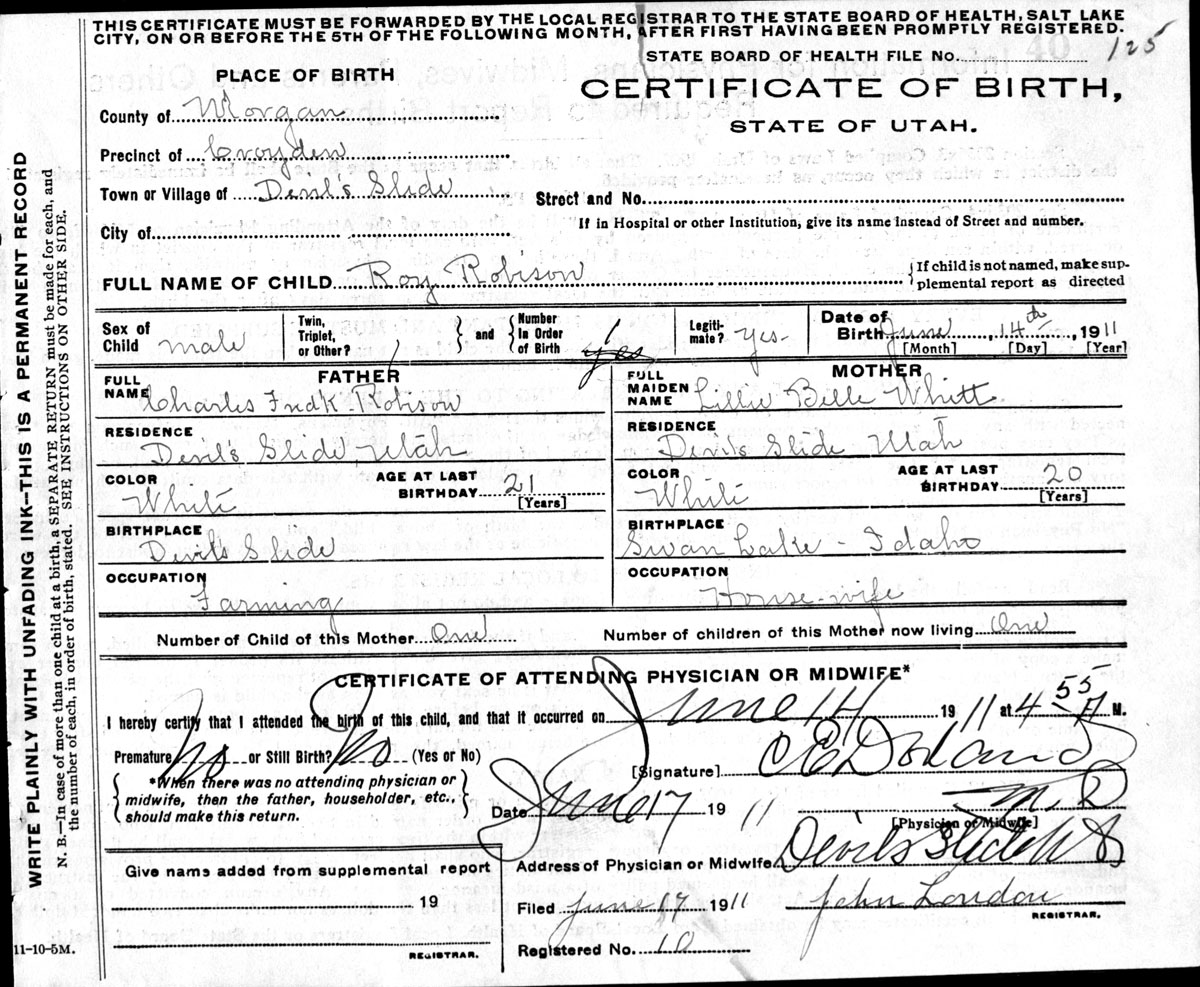 THIS CERTIFICATE MUST BE FORWARDED BY THE LOCAL REGISTRAR TO THE STATE BOARD OF HEALTH, SALT LAKE
CITY, ON OR BEFORE THE 5TH OF THE FOLLOWING MONTH, AFTER FIRST HAVING BEEN PROMPTLY REGISTERED.
STATE BOARD OF HEALTH FILE NO. 125
PLACE OF BIRTH
CERTIFICATE OF BIRTH,
STATE OF UTAH.
County of Morgan
Precinct of Croyden
Town or Village of Devil's Slide
Street and No.
City of
If in Hospital or other Institution, give its name instead of Street and number.
FULL NAME OF CHILD Roy Robison
If child is not named, make sup-
plemental report as directed
Sex of Child male
Twin, Triplet, or Other?
and
Number In Order of Birth 1 yes
Legiti-mate? yes-
Date of Birth June 14th, 1911
[Month] [Day] [Year]
FATHER
FULL NAME Charles Fredk. Robison
RESIDENCE Devil's Slide Utah
COLOR White
AGE AT LAST BIRTHDAY 21 [Years]
BIRTHPLACE Devil's Slide
OCCUPATION Farming
MOTHER
FULL MAIDEN NAME Lillie Belle Whitt
RESIDENCE Devil's Slide Utah
COLOR White
AGE AT LAST BIRTHDAY 20 [Years]
BIRTHPLACE Swan Lake - Idaho
OCCUPATION House-wife
Number of Child of this Mother One
Number of children of this Mother now living One
CERTIFICATE OF ATTENDING PHYSICIAN OR MIDWIFE*
I hereby certify that I attended the birth of this child, and that it occurred on June 14 1911 at 4 55 A M.
Premature No or Still Birth? No (Yes or No)
*When there was no attending physician or
midwife, then the father, householder, etc.,
should make this return.
[Signature] M.D
Date June 17 1911
[Physician or Midwife]
Give name added from supplemental report
19
REGISTRAR.
Address of Physician or Midwife Devils Slide
Filed June 17 1911 John London
REGISTRAR.
Registered No. 10
11-10-5M.
WRITE PLAINLY WITH UNFADING INK—THIS IS A PERMANENT RECORD
N. B.—In case of more than one child at a birth, a SEPARATE RETURN must be made for each, and
the number of each, in order of birth, stated. SEE INSTRUCTIONS ON OTHER SIDE.